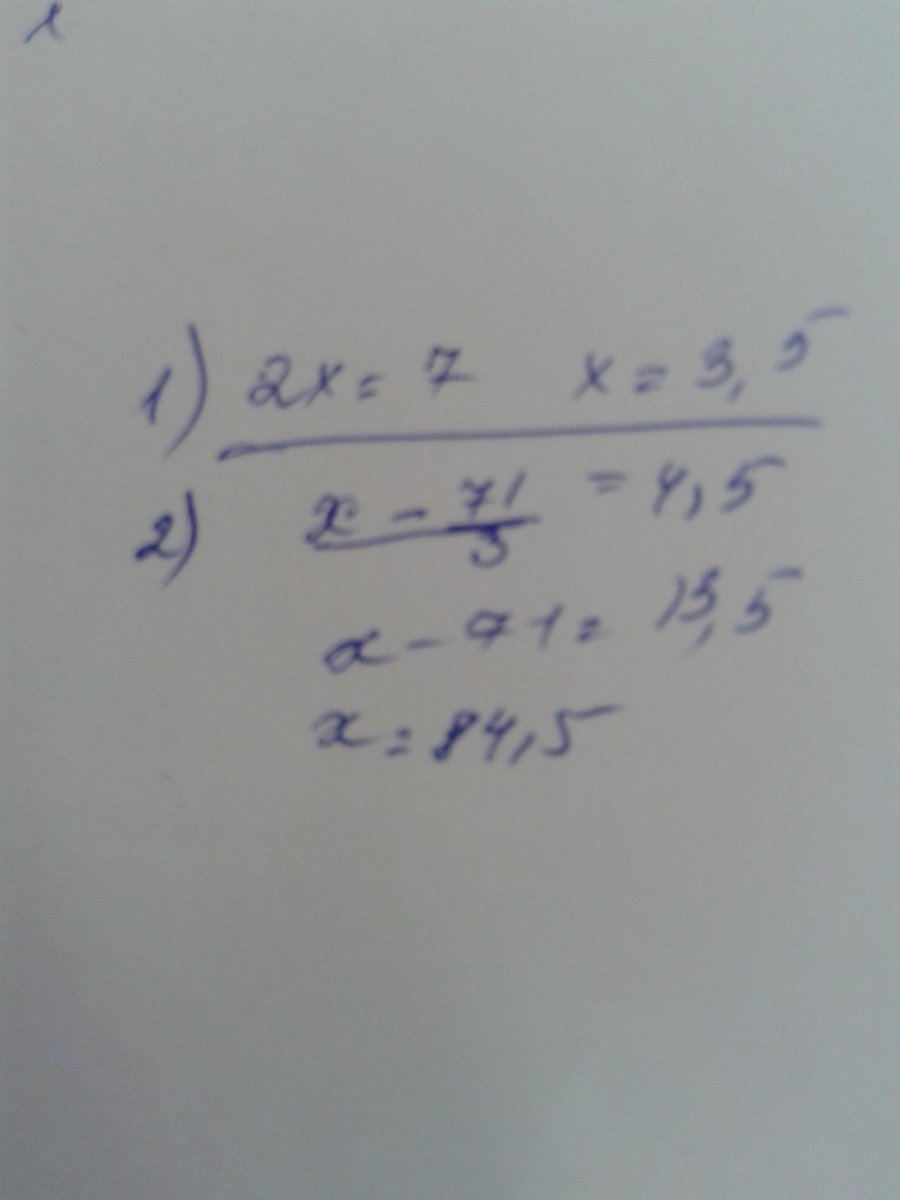 1) 2x = 7 x = 3,5
2) x - 71 / 3 = 4,5
x - 71 = 13,5
x = 84,5